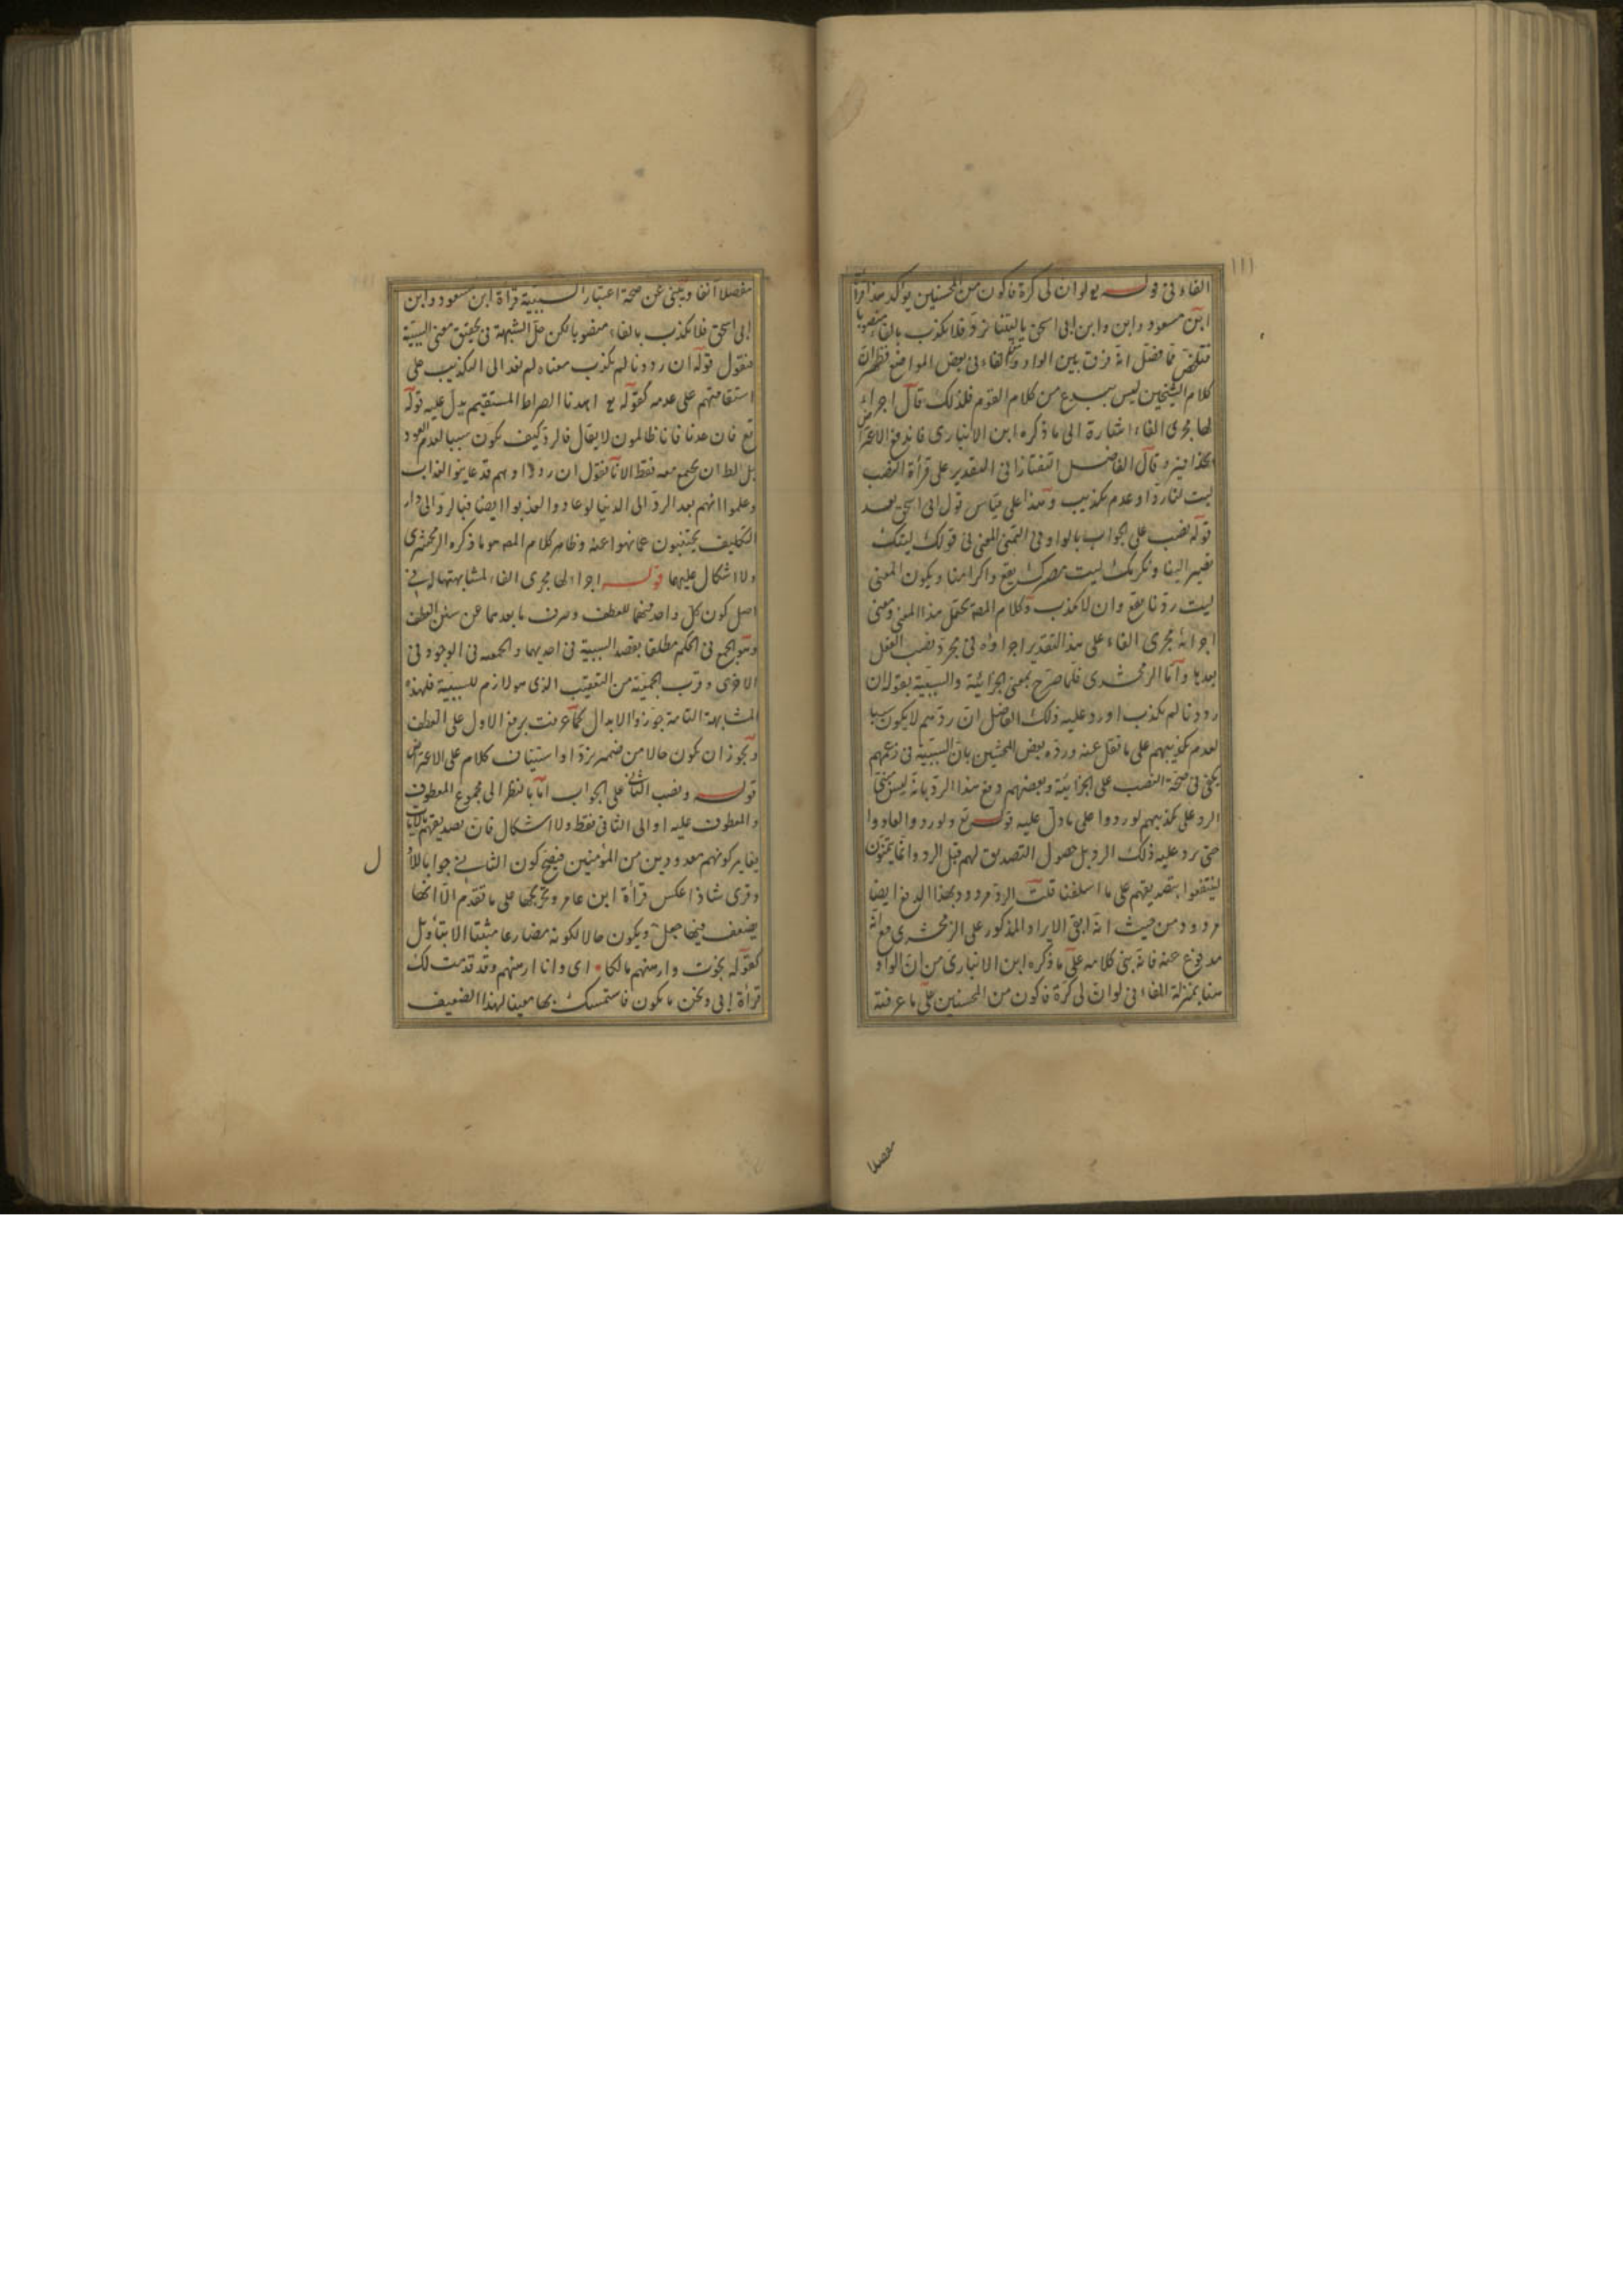 ١١١
الفاء في قوله تع لو ان لي كرة فاكون من المحسنين يؤكد هذا قرأة
ابن مسعود وابن ابي اسحق يا ليتنا نرد فلا نكذب بالفاء منصوبا
انه فرق بين الواو والفاء في بعض المواضع فظهر ان
كلام الشيخين ليس ببدع من كلام القوم فلذلك قال اجراء
لها مجرى الفاء اشارة الى ما ذكره ابن الانباري فاندفع الاعتراض
بحذافيره وقال الفاضل التفتازاني التقدير على قرأة النصب
ليت لنا ردا وعدم تكذيب وهذا على قياس قول ابي اسحق بعد
قوله نصب على الجواب بالواو في التمني المعنى في قولك ليتك
تصير الينا ونكرمك ليت مصيرك يقع واكرامنا ويكون المعنى
ليت ردنا يقع وان لا نكذب وكلام المصـ يحتمل هذا المعنى ومعنى
اجرائه مجرى الفاء على هذا التقدير اجراؤه في مجرد نصب الفعل
بعدها وأما الزمخشري فلما صرح بمعنى الجزائية والسببية بقوله ان
رددنا لم نكذب اورد عليه ذلك الفاضل ان ردهم لا يكون سببا
لعدم تكذيبهم على ما نقل عنه ورده بعض المحشين بان السببية في زعمهم
يكفي في صحة النصب على الجزائية وبعضهم دفع هذا الرد بانه ليس مبنى
الرد على تكذيبهم لو ردوا على ما دل عليه قوله تع ولو ردوا لعادوا
حتى يرد عليه ذلك الرد بل حصول التصديق لهم قبل الرد وانما يتمنون
لينتفعوا بتصديقهم على ما اسلفنا قلت الرد مردود بهذا الدفع ايضا
مردود من حيث انه ابقى الايراد المذكور على الزمخشري مع انه
مدفوع عنه فانه بنى كلامه على ما ذكره ابن الانباري من ان الواو
هنا بمنزلة الفاء في لو ان لي كرة فاكون من المحسنين على ما عرفته
مفصلا
مفصلا آنفا ويبنى عن صحة اعتبار السببية قرأة ابن مسعود وابن
ابي اسحق فلا نكذب بالفاء منصوبا لكن حل الشبهة في تحقيق معنى السببية
فنقول قوله ان رددنا لم نكذب معناه لم نعد الى التكذيب على
استقامتهم على عدمه كقوله تع اهدنا الصراط المستقيم يدل عليه قوله
تع فان عدنا فانا ظالمون لا يقال فالرد كيف يكون سببا لعدم العود
بل الظ ان يجتمع معه فقط لانا نقول ان ردوا وهم قد عاينوا العذاب
وعلموا انهم بعد الرد الى الدنيا لو عادوا لعذبوا ايضا فبالرد الى دار
التكليف يجتنبون عما نهوا عنه وظاهر كلام المصـ هو ما ذكره الزمخشري
ولا اشكال عليها قوله اجراء لها مجرى الفاء لمشابهتها له في
اصل كون كل واحد منهما للعطف وصرف ما بعدهما عن سنن العطف
وهو الجمع في الحكم مطلقا بقصد السببية في احديهما والجمعية في الوجود في
الاخرى وقرب الجمعية من التعقيب الذي هو لازم للسببية فلهذه
المشابهة التامة جوزوا الابدال كما عرفت برفع الاول على العطف
ويجوز ان يكون حالا من ضمير نرد او استيناف كلام على الاعتراض
قوله ونصب الثاني على الجواب اما بالنظر الى مجموع المعطوف
والمعطوف عليه او الى الثاني فقط ولا اشكال فان تصديقهم بالايات
يغاير كونهم معدودين من المؤمنين فيصح كون الثاني جوابا للاول
وقرئ شاذا عكس قرأة ابن عامر وتخريجها على ما تقدم الا انها
يضعف فيها جعل ويكون حالا لكونه مضارعا مثبتا الا بتأويل
كقوله نجوت وارهنهم مالكا اي وانا ارهنهم وقد قدمت لك
قرأة ابي ونحن نكون فاستمسك بها معينا لهذا الضعيف